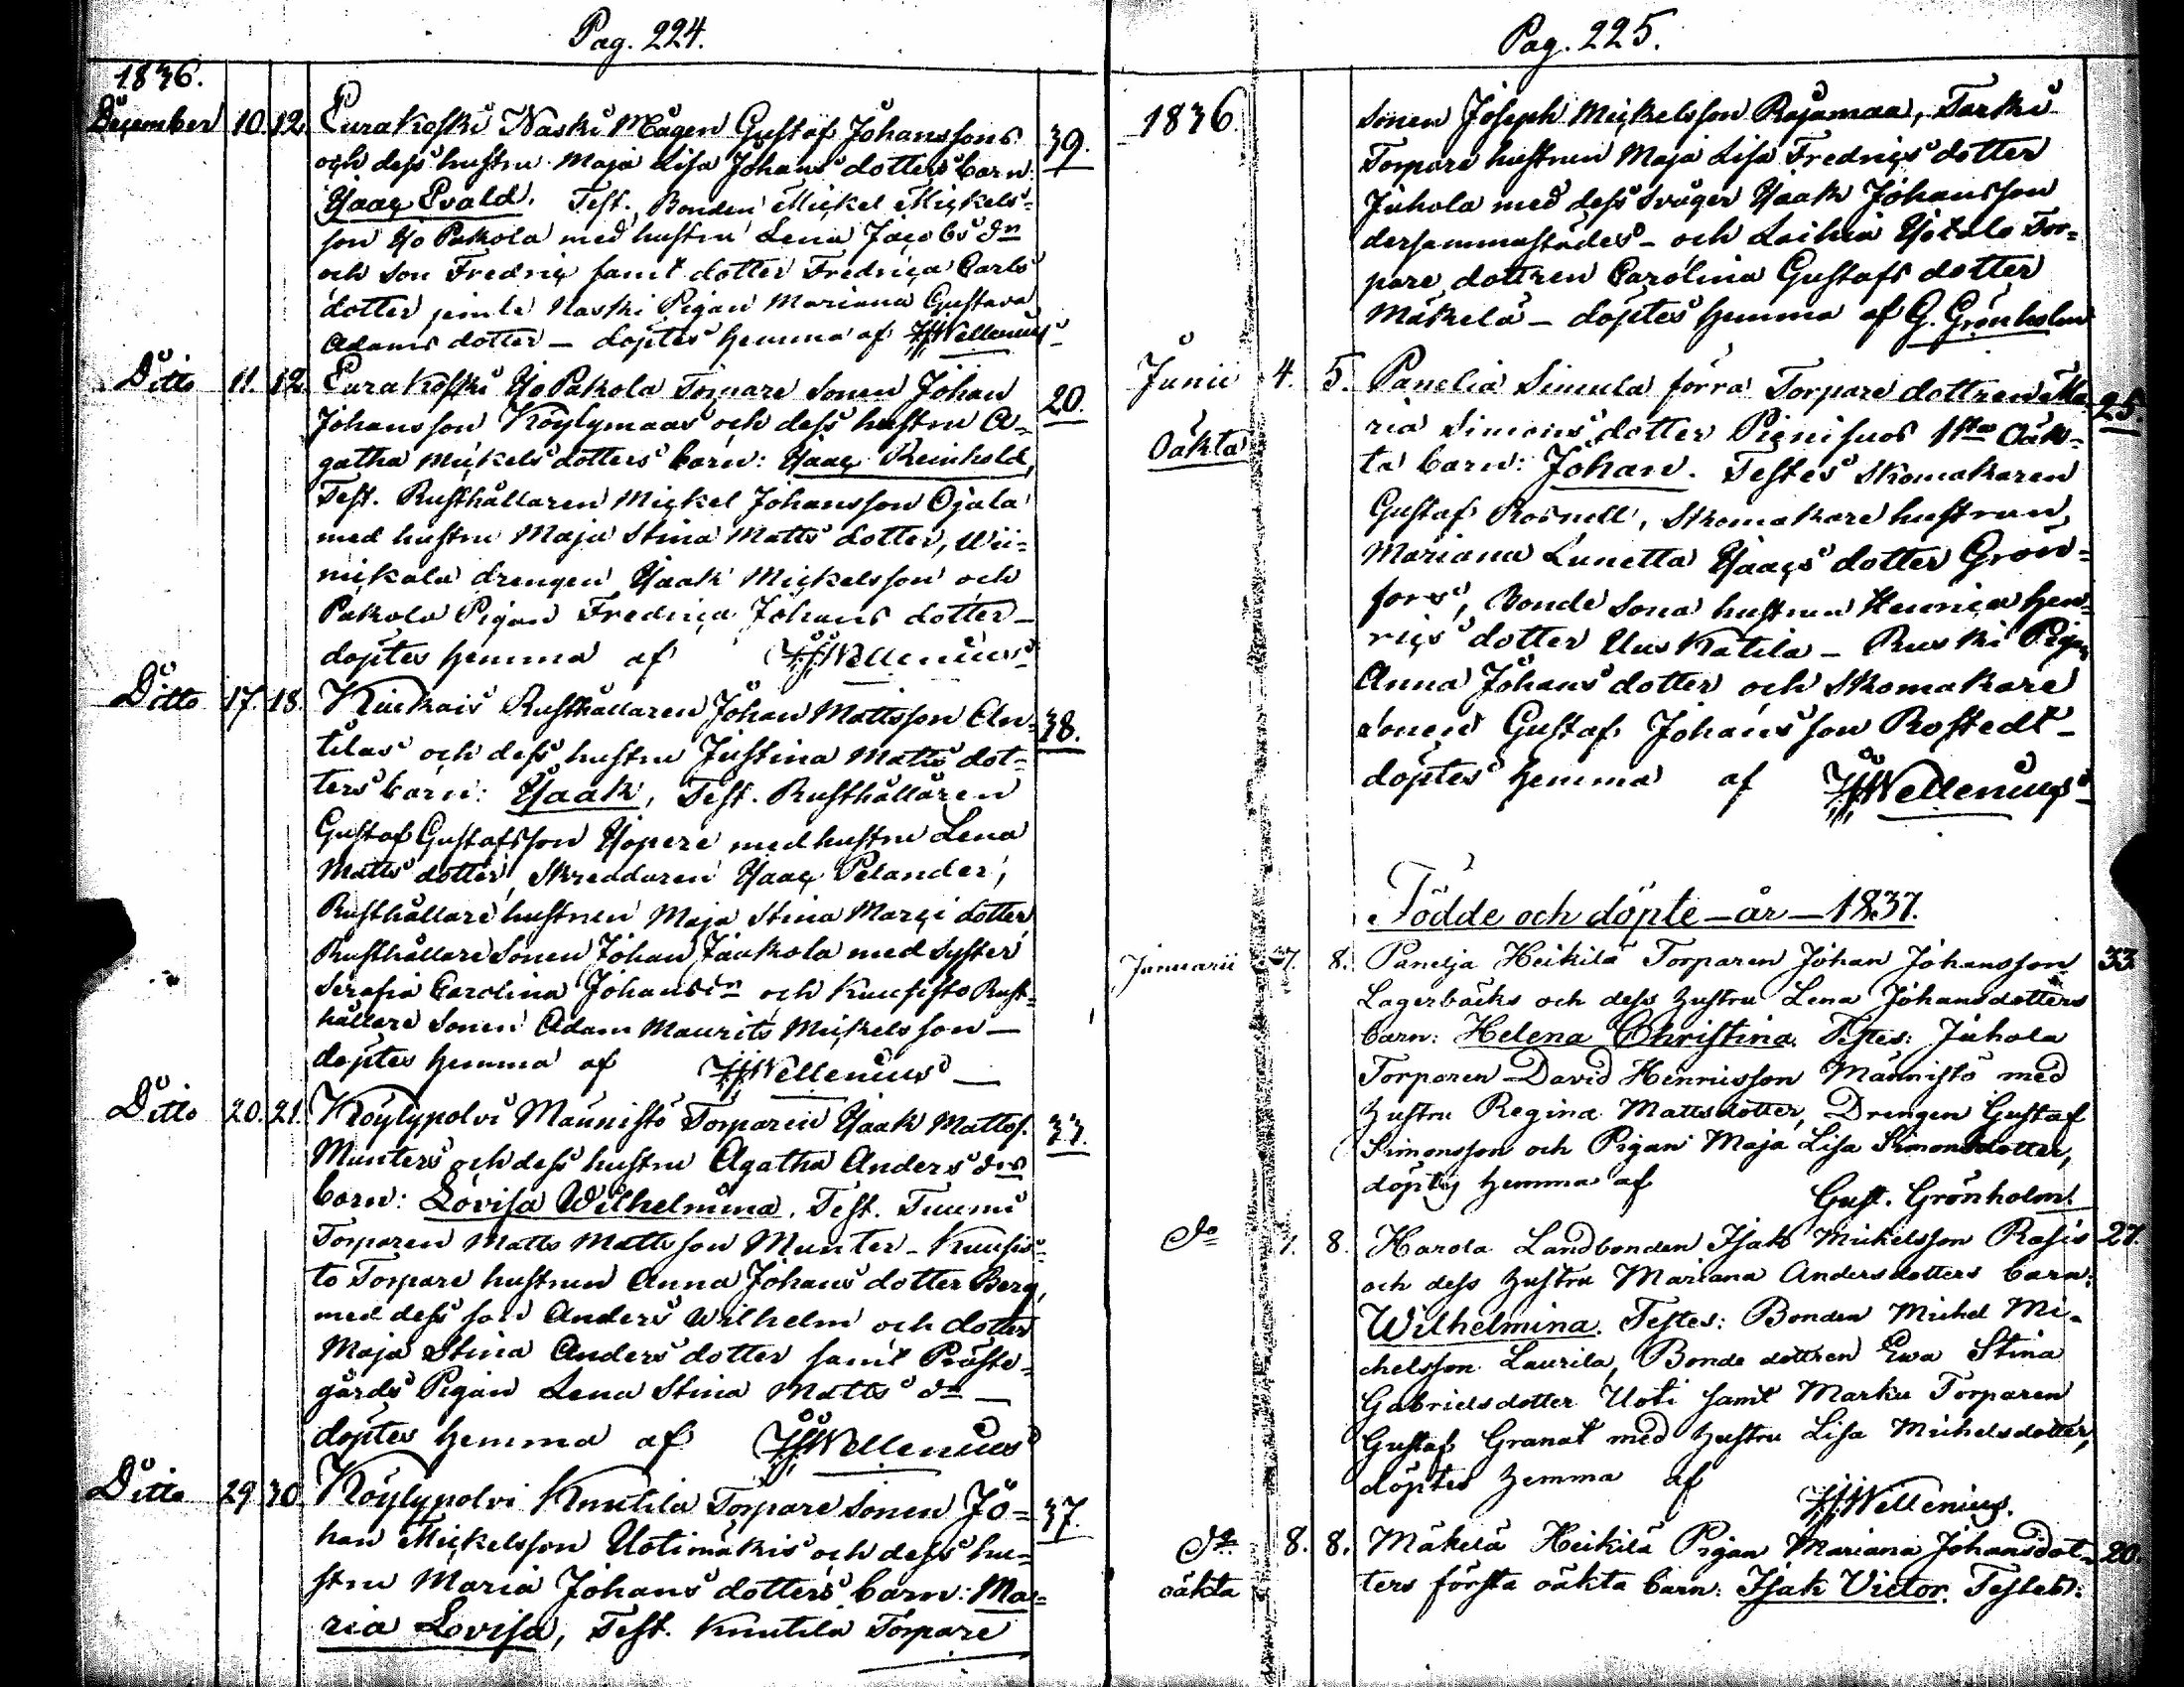 Pag. 224.
1836.
December 10. 12. Eurakoski Naski Mågen Gustaf Johanssons 39.
och dess hustru Maja Lisa Johans dotters barn:
Isaac Evald. Test. Bonden Mickel Mickels=
son Iso Pakola med hustru Lena Jacobs dn
och Son Fredric samt dotter Fredrica Carls
dotter jemte Naski Pigan Mariana Gustava
Adams dotter — döptes hemma af Wellenius
Ditto 11. 12. Eurakoski Iso Pakola Torpare Sonen Johan 20.
Johansson Köylymaas och dess hustru A=
gatha Mickels dotters barn: Isaac Reinhold,
Test. Rusthållaren Mickel Johansson Ojala
med hustru Maja Stina Matts dotter, Wii=
nikala drengen Isaak Mickelsson och
Pakola Pigan Fredrica Johans dotter —
döptes hemma af Wellenius
Ditto 17. 18. Kiukais Rusthållaren Johan Mattsson An= 38.
tilas och dess hustru Justina Matts dot=
ters barn: Isaak, Test. Rusthållaren
Gustaf Gustafsson Yopere med hustru Lena
Matts dotter, Skreddaren Isaac Pelander,
Rusthållare hustrun Maja Stina Marci dotter,
Rusthållare Sonen Johan Jaakola med Syster
Serafia Carolina Johans dn och Kuusisto Rust=
hållare Sonen Adam Maurits Mickelsson —
döptes hemma af Wellenius —
Ditto 20. 21. Köylypolvi Männistö Torparen Isaak Mattss. 33.
Munters och dess hustru Agatha Anders drs
barn: Lovisa Wilhelmina. Test. Tuumi
Torparen Matts Mattsson Munter — Kuusis=
to Torpare hustrun Anna Johans dotter Berg,
med dess son Anders Wilhelm och dotter
Maja Stina Anders dotter samt Präste=
gårds Pigan Lena Stina Matts dn —
döptes hemma af Wellenius
Ditto 29 30. Köylypolvi Knutila Torpare Sonen Jo= 37.
han Mickelsson Uotimäkis och dess hu=
stru Maria Johans dotters barn: Ma=
ria Lovisa, Test. Knutila Torpare
Pag. 225.
1836. Sonen Joseph Mickelsson Rajamaa, Taski
Torpare hustrun Maja Lisa Fredrics dotter
Juhola med dess Svåger Isaak Johansson
dersammastädes — och Laihia Ylötalo Tor=
pare dottren Carolina Gustafs dotter
Mäkelä — döptes hemma af G. Grönholm
Junii 4. 5. Panelia Simula förra Torpare dottren Ma= 25
Oäkta ria Simons dotter Pignisuos 1sta Oäk=
ta barn: Johan. Testes Skomakaren
Gustaf Rosnell, Skomakare hustrun
Mariana Lunetta Isaacs dotter Grön=
fors, Bonde Sona hustrun Henrica Hen=
rics dotter Uus Katila — Ruski Pigan
Anna Johans dotter och Skomakare
Sonen Gustaf Johansson Rostedt —
döptes hemma af Wellenius
Födde och döpte — år — 1837.
Januarii 7. 8. Panelja Heikilä Torparen Johan Johansson 33.
Lagerbäcks och dess hustru Lena Johansdotters
barn: Helena Christina. Testes: Juhola
Torparen David Henricsson Männistö med
hustru Regina Mattsdotter, Drengen Gustaf
Simonsson och Pigan Maja Lisa Simonsdotter,
döptes hemma af Gust. Grönholm.
do 7. 8. Harola Landbonden Isak Mickelsson Rasis 27.
och dess hustru Mariana Andersdotters barn:
Wilhelmina. Testes: Bonden Michel Mi=
chelsson Laurila, Bonde dottren Ewa Stina
Gabrielsdotter Uoti samt Marku Torparen
Gustaf Granat med hustru Lisa Michelsdotter,
döptes hemma af Wellenius.
do 8. 8. Mäkelä Heikilä Pigan Mariana Johansdot= 20.
oäkta ters första oäkta barn: Isak Victor. Testes: